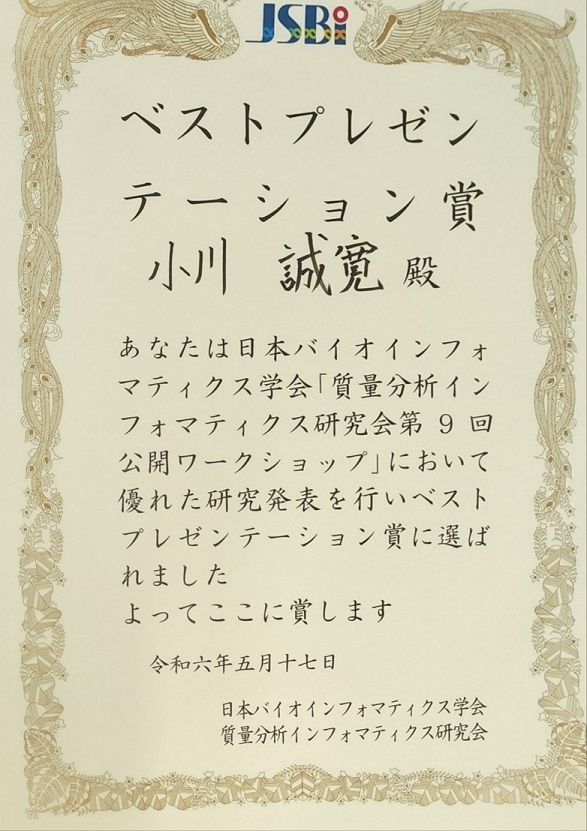 JSBi
ベストプレゼン
テーション賞
小川 誠寛 殿
あなたは日本バイオインフォ
マティクス学会「質量分析イン
フォマティクス研究会第9回
公開ワークショップ」において
優れた研究発表を行いベスト
プレゼンテーション賞に選ば
れました
よってここに賞します
令和六年五月十七日
日本バイオインフォマティクス学会
質量分析インフォマティクス研究会